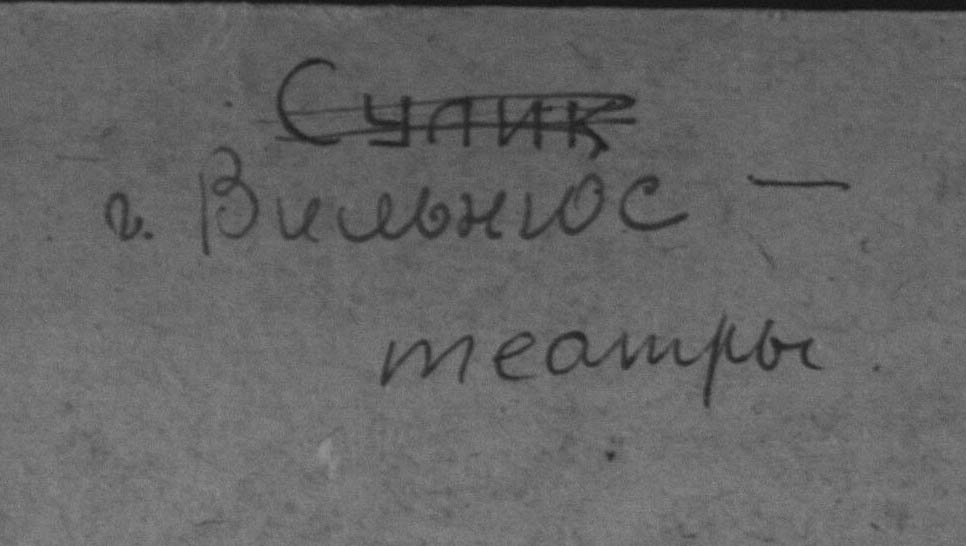 Сулик
г. Вильнюс —
театры.